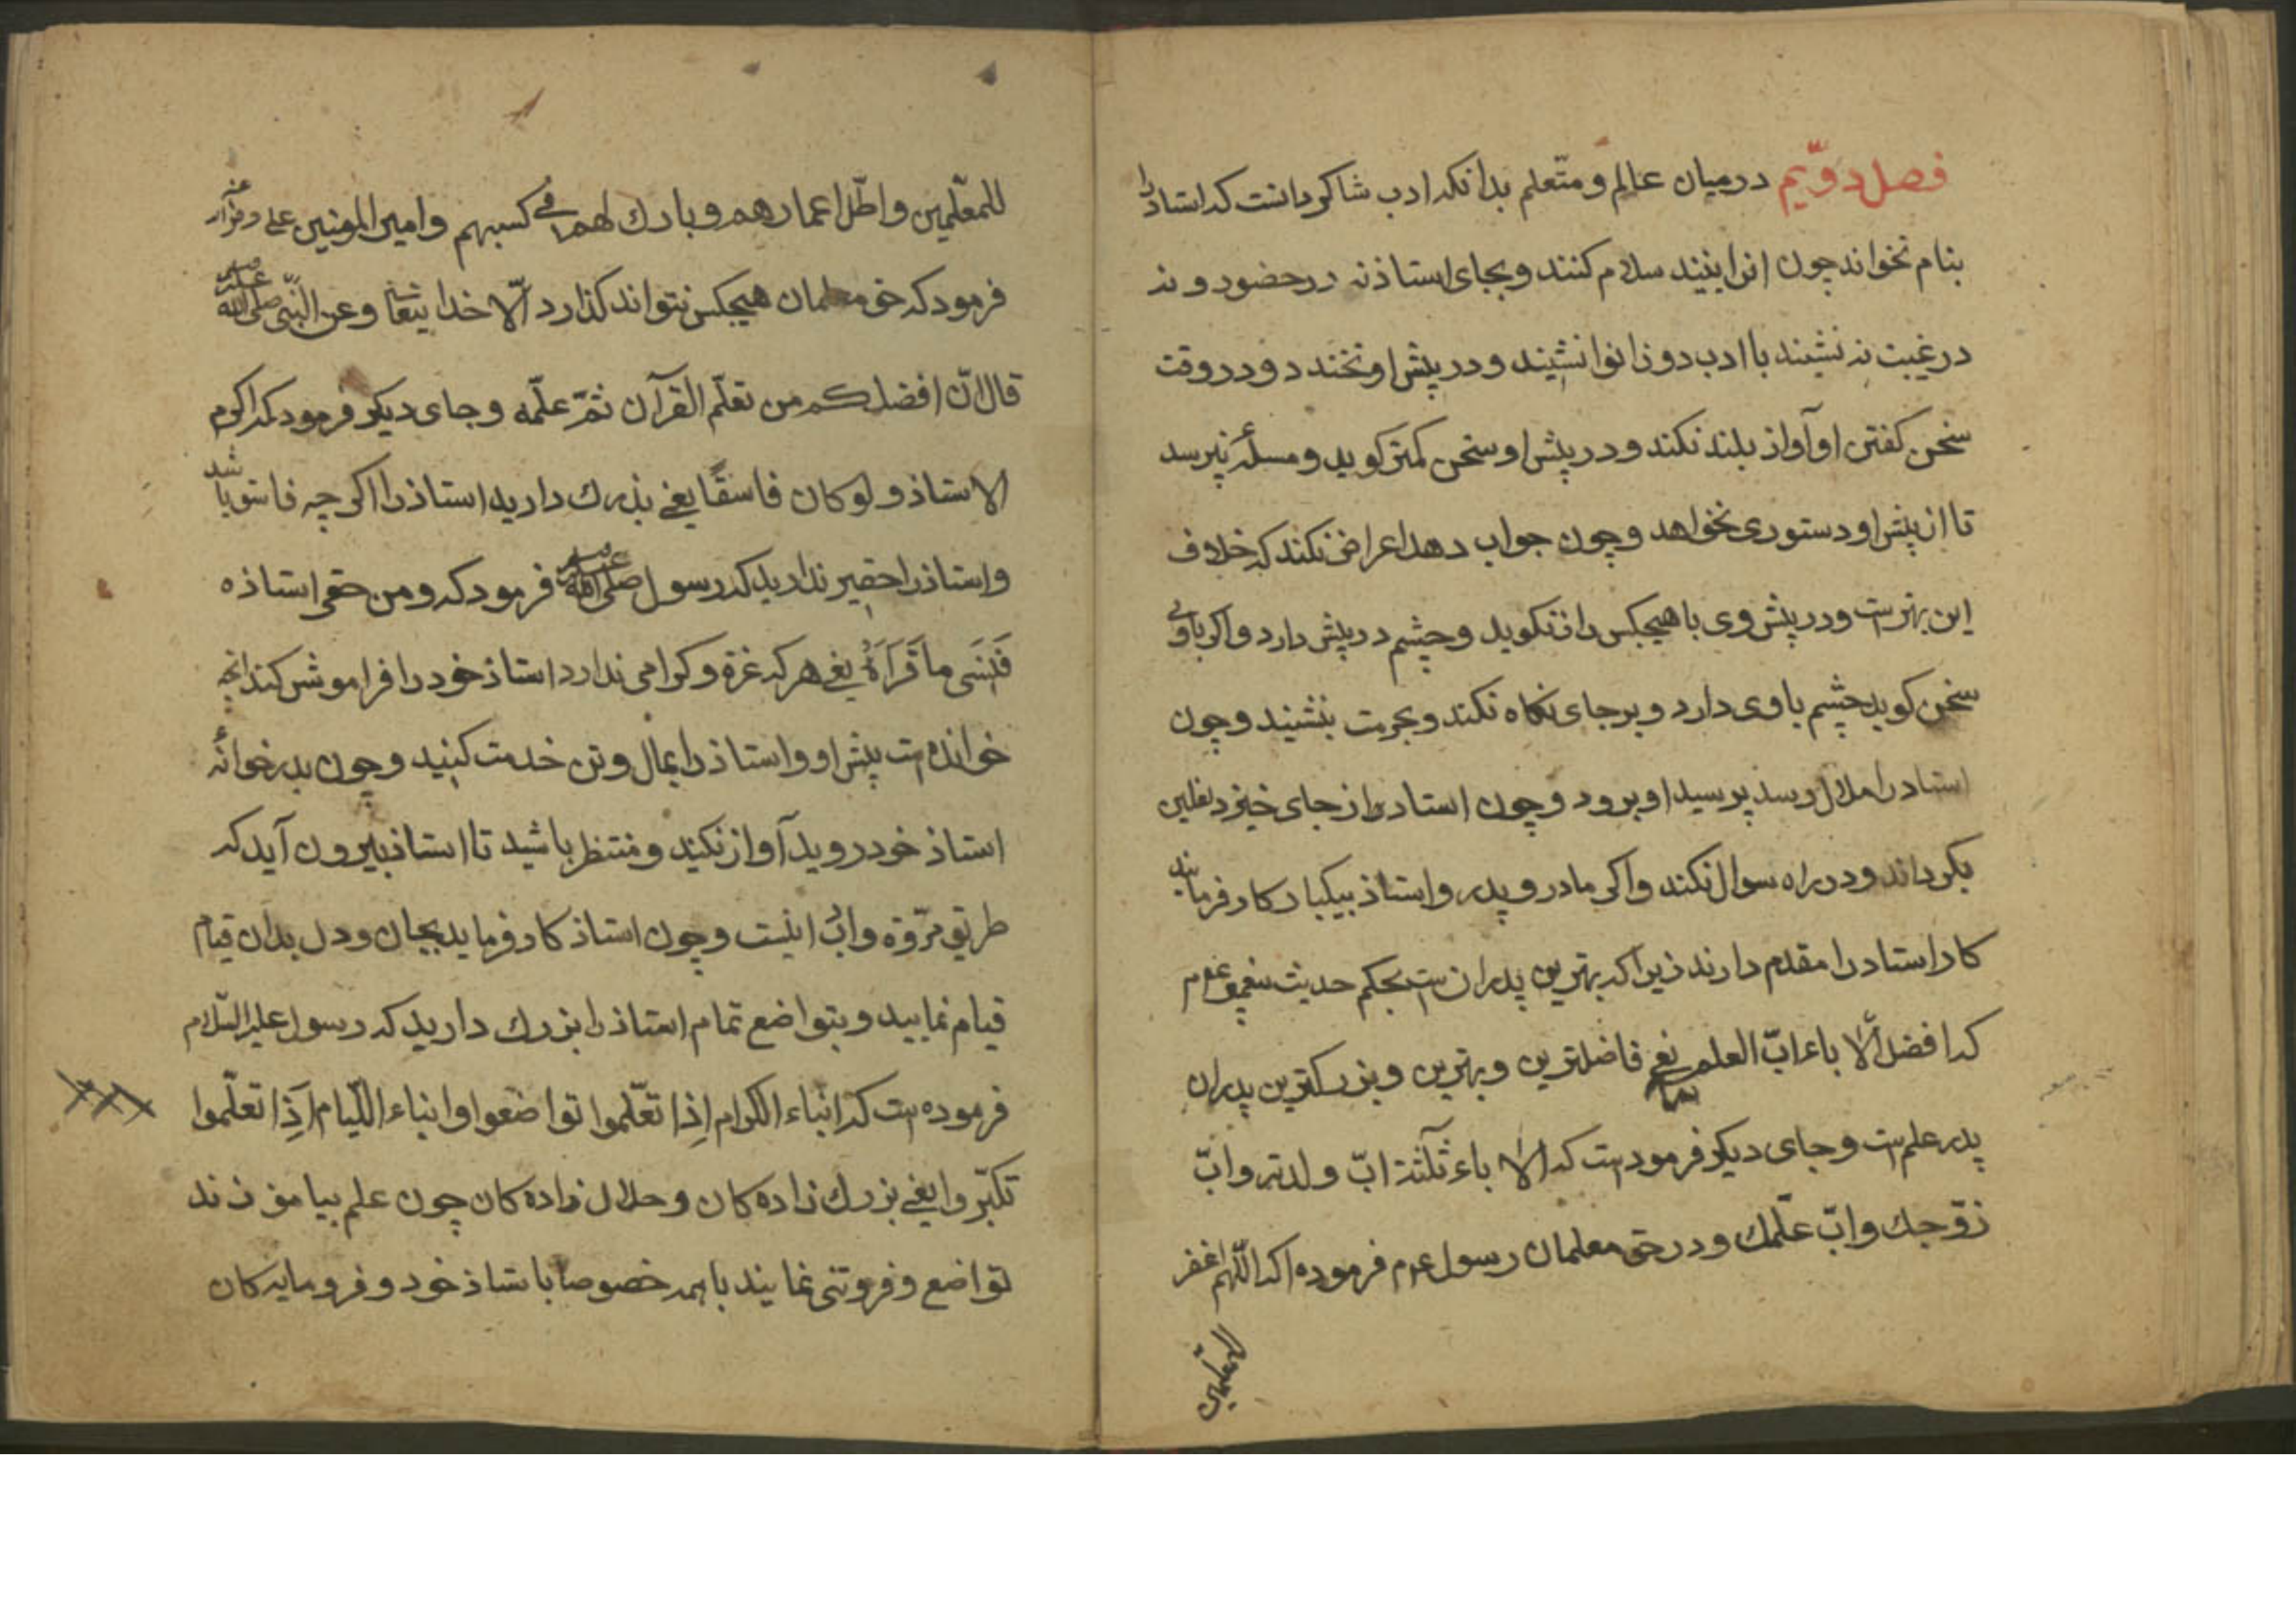 فصل دوّیم در میان عالم و متعلم بدانکه ادب شاکرد انست که استاد را
بنام نخواند چون انرا بینید سلام کنند و بجای استاذ نه در حضور و نه
در غیبت نه نشیند با ادب دو زانوا نشیند و در پیش او نخندد و در وقت
سخن کفتن او آواز بلند نکند و در پیش او سخن کمتر کوید و مسئله نپرسد
تا از پیش او دستوری نخواهد و چون جواب دهد اعراض نکند که خلاف
این بهترست و در پیش وی با هیچکس راز نکوید و چشم در پیش دارد و اکر با وی
سخن کوید چشم با وی دارد و برجای نکاه نکند و بحرمت بنشیند و چون
استاد را ملال رسد پرسید او برود و چون استاد از جای خیزد نعلین
بکرداند و در راه سوال نکند و اکر مادر و پدر و استاذ بیکبار کار فرمایند
کار استاد را مقدم دارند زیرا که بهترین پدرانست بحکم حدیث
که افضل الا باء ابّ العلم یعنی فاضلترین و بهترین و بزرکترین پدران
پدر علم است و جای دیکر فرمودست که الا باء ثلثة ابّ ولدته و ابّ
زوّجك و ابّ علّمك و در حق معلمان رسول عم فرموده اکه اللّهم اغفر
للمعلّمین
للمعلّمین و اطّل اعمارهم و بارك لهم فی کسبهم و امیر المومنین علی
فرمود که حق معلمان هیچکس نتواند کذارد الّا خدا یتعا و عن النّبی صلی الله علیه وسلم
قال انّ افضلکم من تعلّم القرآن ثمّ علّمه و جای دیکر فرمود که اکرم
الاستاذ و لو کان فاسقًا یعنی بذرك دارید استاذ را اکرچه فاسق باشد
و استاذ را حقیر ندارید که رسول صلی الله علیه وسلم فرمود که و من حقر استاذه
فَنَسَی ما قَرَاَهُ یعنی هر که عزة و کرامی ندارد استاذ خود را فراموش کند انچه
خوانده است پیش او و استاذ را بمال و تن خدمت کنید و چون بدر خوانه
استاذ خود روید آواز نکنید و منتظر باشید تا استاذ بیرون آید که
طریق مرّوة و ابٌ اینست و چون استاذ کار فرماید بجان و دل بدان قیام
قیام نمایید و بتواضع تمام استاذ را بزرك دارید که رسول علیه السّلام
فرموده است که ابناء الکرام اِذا تعّلموا تواضعوا و ابناء اللّیام اِذا تعلّموا
تکبّروا یعنی بزرك زاده کان و حلال زاده کان چون علم بیاموزند
تواضع و فروتنی نمایند با همه خصوصا با ستاذ خود و فرومایه کان